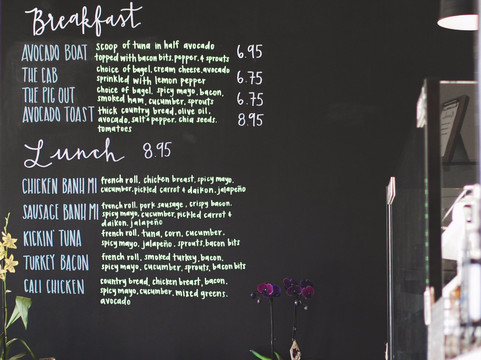 Breakfast
AVOCADO BOAT scoop of tuna in half avocado topped with bacon bits, pepper, & sprouts 6.95
THE CAB choice of bagel, cream cheese, avocado sprinkled with lemon pepper 6.75
THE PIG OUT choice of bagel, spicy mayo, bacon, smoked ham, cucumber, sprouts 6.75
AVOCADO TOAST thick country bread, olive oil, avocado, salt & pepper, chia seeds, tomatoes 8.95
Lunch 8.95
CHICKEN BANH MI french roll, chicken breast, spicy mayo, cucumber, pickled carrot & daikon, jalapeño
SAUSAGE BANH MI french roll, pork sausage, crispy bacon, spicy mayo, cucumber, pickled carrot & daikon, jalapeño
KICKIN' TUNA french roll, tuna, corn, cucumber, spicy mayo, jalapeño, sprouts, bacon bits
TURKEY BACON french roll, smoked turkey, bacon, spicy mayo, cucumber, sprouts, bacon bits
CALI CHICKEN country bread, chicken breast, bacon, spicy mayo, cucumber, mixed greens, avocado